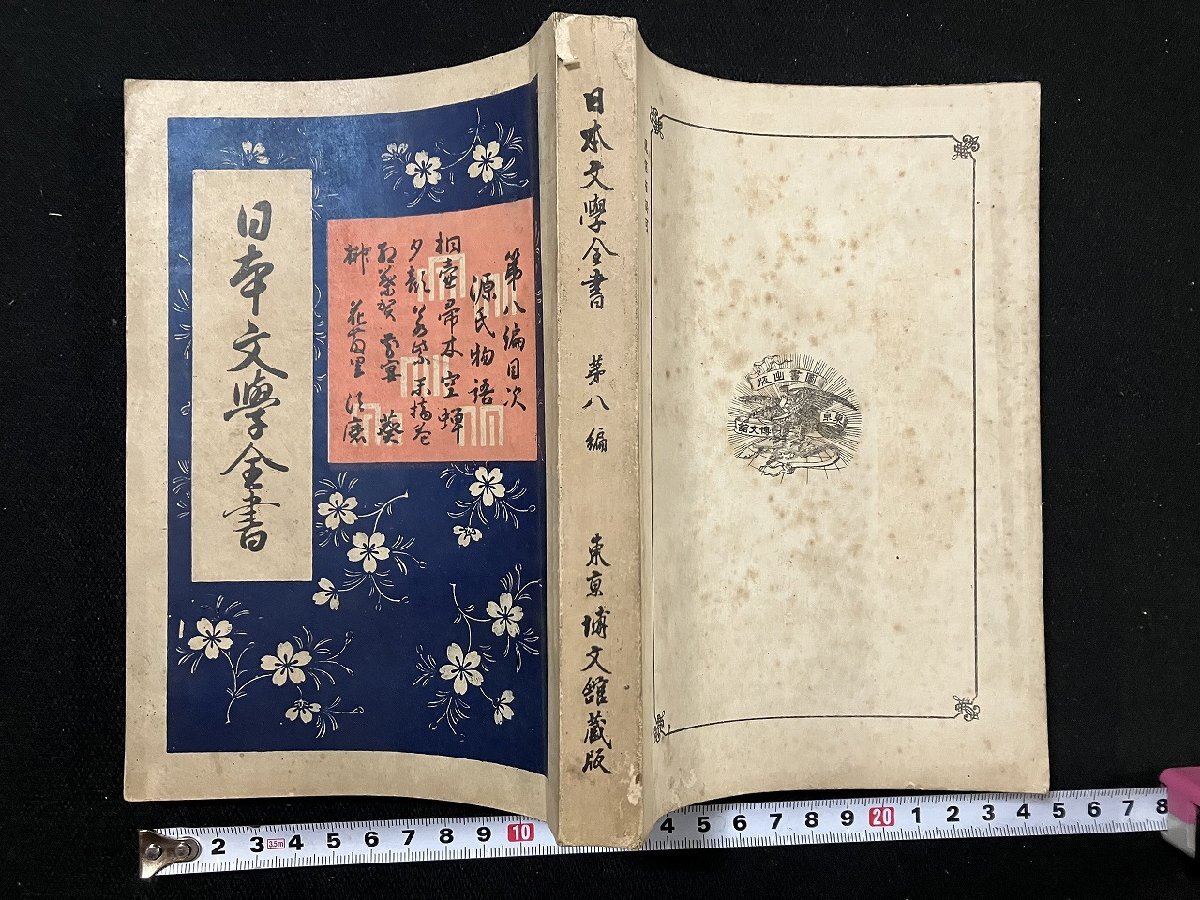 日本文學全書
第八編目次
源氏物語
桐壺 帚木 空蟬
夕顏 若紫 末摘花
紅葉賀 花宴 葵
榊 花散里 須磨
日本文學全書 第八編 東京 博文館蔵版
圖書出版
東京
博文館
2 3 3.5m 4 5 6 7 8 9 10
4 5 6 7 8 9 20 1 2 3 4 5 6 7 8